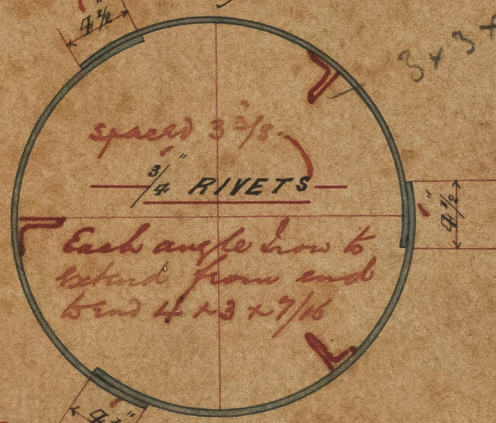 4½"
3 x 3 x
spaced 3 3/8
3/4" RIVETS
4½"
Each angle Iron to
extend from end
to end 4 x 3 x 7/16